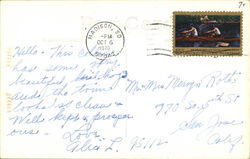 MADISON, SD
PM
OCT 6
1970
Hello - This C
has some very
beautiful
and the town
looks so clean &
Well kept & prosper
ous -
Love
Alice L.
Mr + Mrs Mervyn Roth
770 So. 6th St
San Jose
Calif
95112